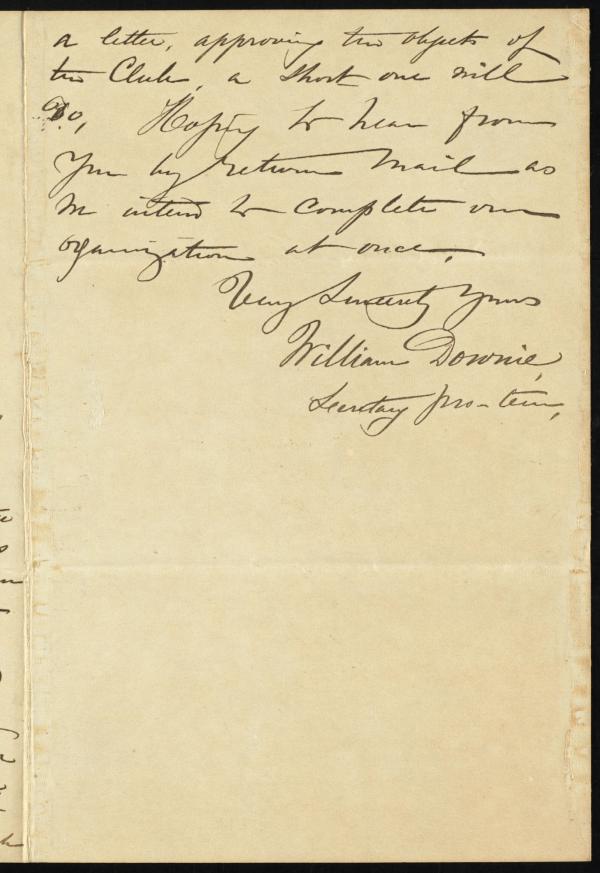 a letter, approving the objects of
the Club, a short one will
do, Hoping to hear from
you by return mail as
we intend to complete our
organization at once,
Very Sincerely Yours
William Downie,
Secretary pro-tem,